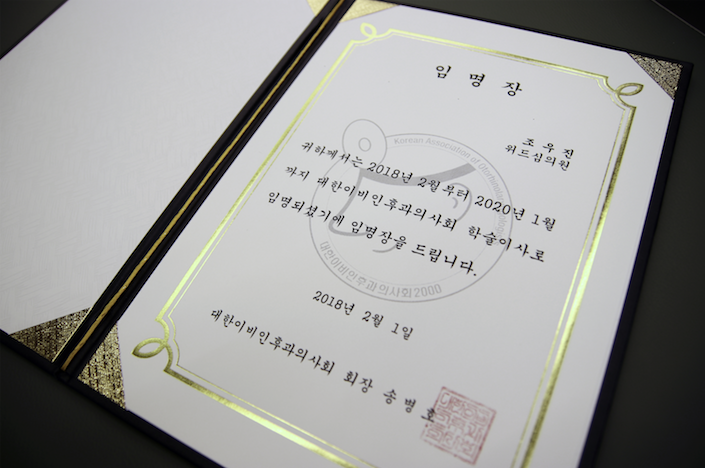 임 명 장
조 우 진
위드심의원
귀하께서는 2018년 2월부터 2020년 1월
까지 대한이비인후과의사회 학술이사로
임명되셨기에 임명장을 드립니다.
Korean Association of
대한이비인후과의사회2000
2018년 2월 1일
대한이비인후과의사회 회장 송병호